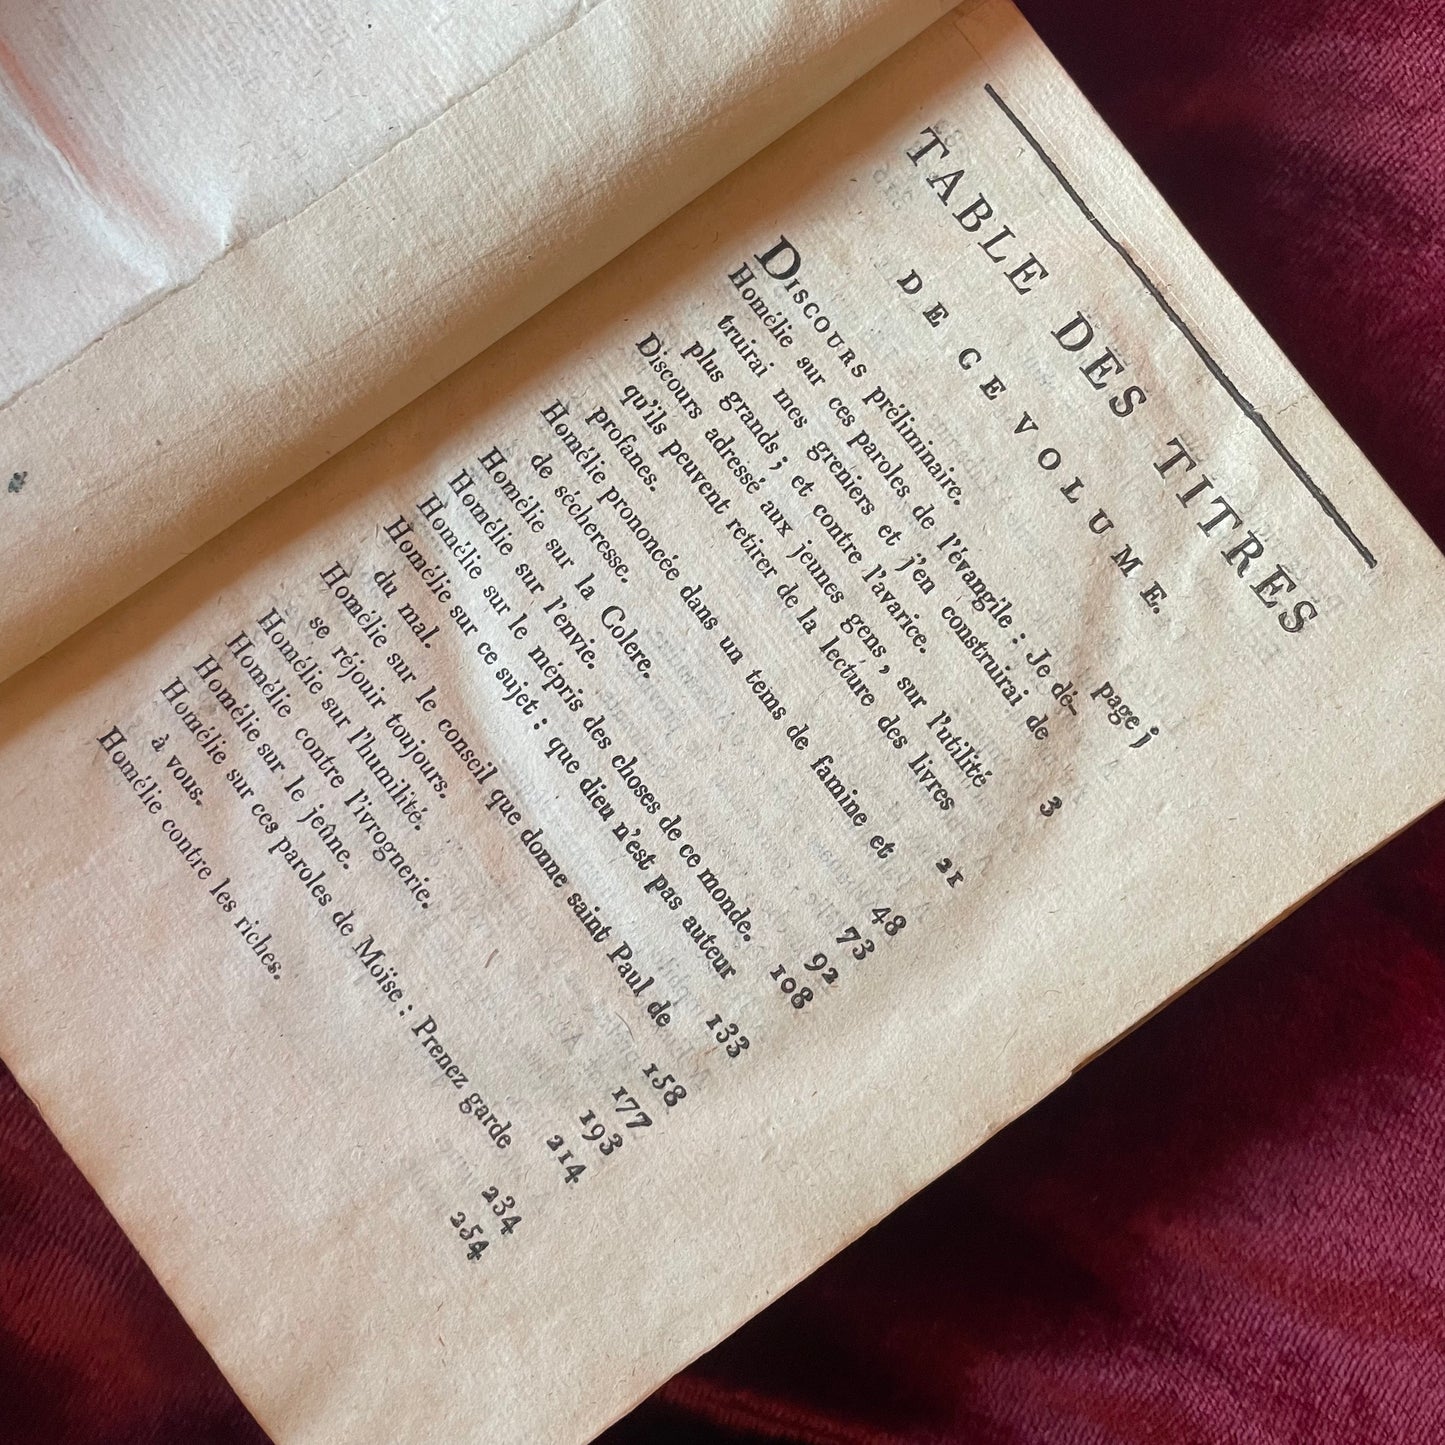 TABLE DES TITRES
DE CE VOLUME.
Discours préliminaire. page j
Homélie sur ces paroles de l'évangile : Je dé-
truirai mes greniers et j'en construirai de
plus grands ; et contre l'avarice. 3
Discours adressé aux jeunes gens, sur l'utilité
qu'ils peuvent retirer de la lecture des livres
profanes. 21
Homélie prononcée dans un tems de famine et
de sécheresse. 48
Homélie sur la Colere. 73
Homélie sur l'envie. 92
Homélie sur le mépris des choses de ce monde. 108
Homélie sur ce sujet : que dieu n'est pas auteur
du mal. 133
Homélie sur le conseil que donne saint Paul de
se réjouir toujours. 158
Homélie sur l'humilité. 177
Homélie contre l'ivrognerie. 193
Homélie sur le jeûne. 214
Homélie sur ces paroles de Moïse : Prenez garde
à vous. 234
Homélie contre les riches. 254